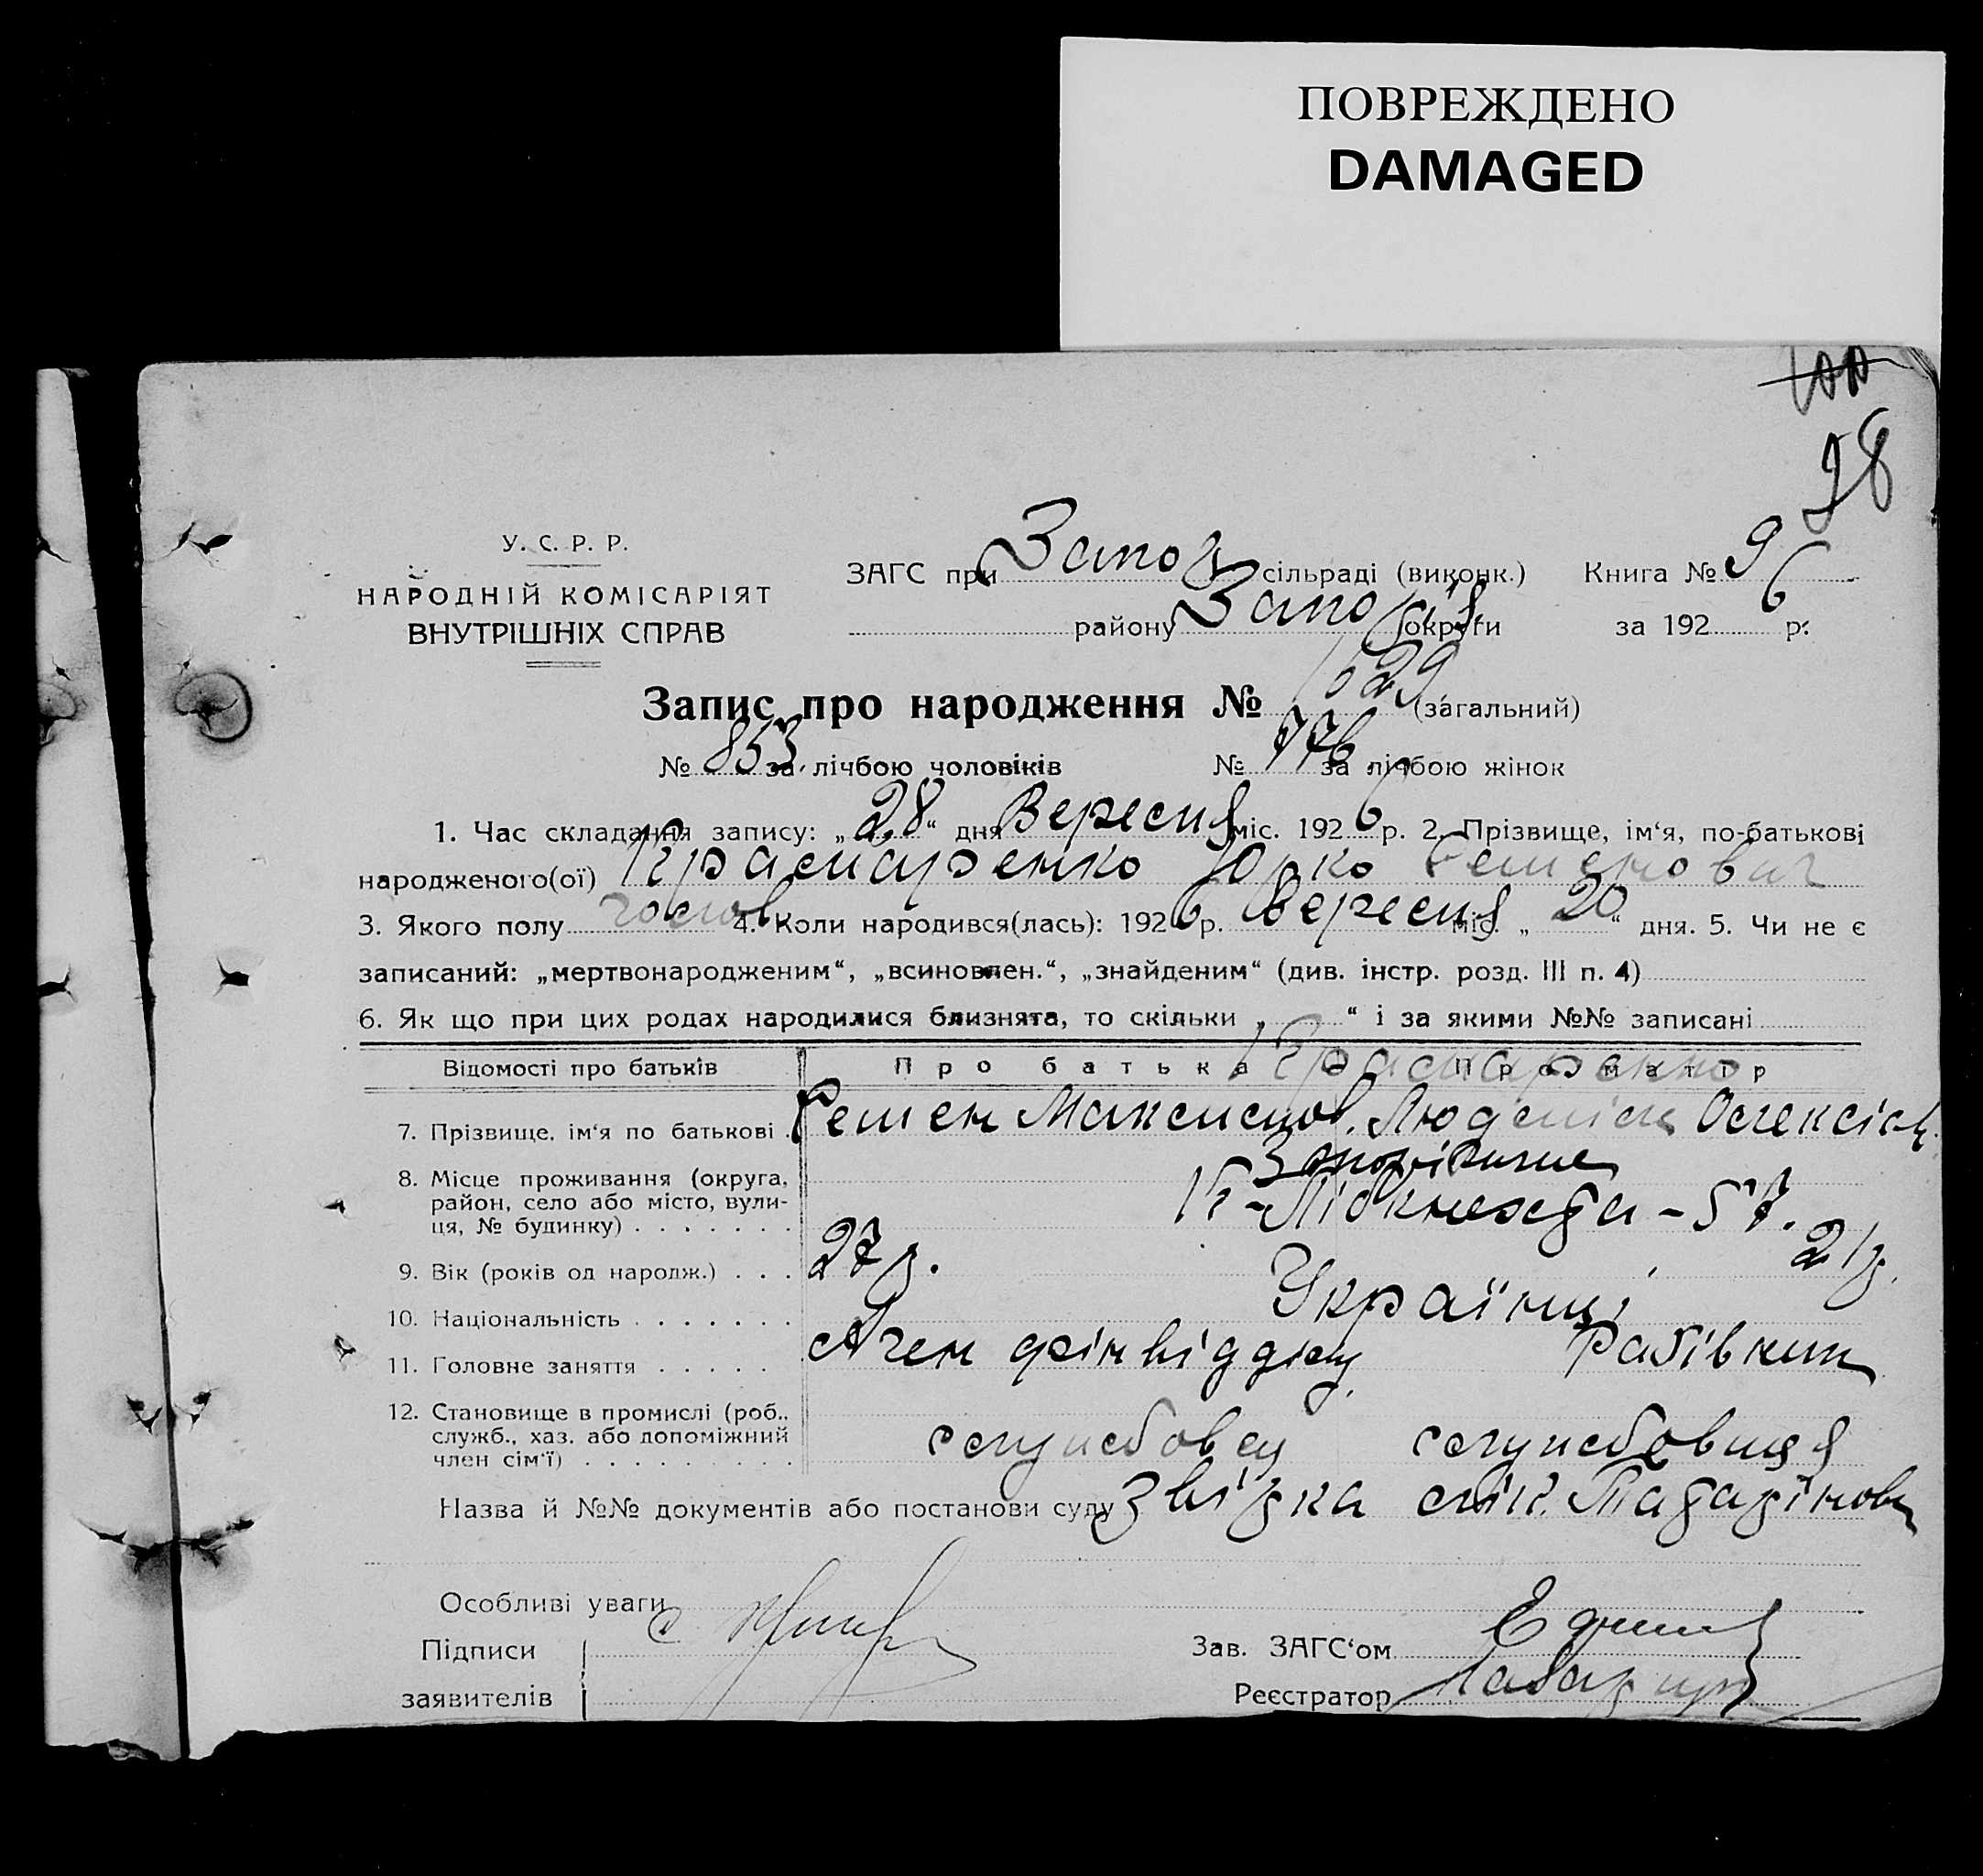 ПОВРЕЖДЕНО
DAMAGED
100
98
У. С. Р. Р.
НАРОДНІЙ КОМІСАРІЯТ
ВНУТРІШНІХ СПРАВ
ЗАГС при Запор сільраді (виконк.) Книга № 9
району Запор округи за 1926 р.
Запис про народження № 1629 (загальний)
№ 853 за лічбою чоловіків № 776 за лічбою жінок
1. Час складання запису: „28“ дня Вересня міс. 1926 р. 2. Прізвище, ім‘я, по-батькові
народженого(ої) Юрко Семенович
3. Якого полу чолов 4. Коли народився(лась): 1926 р. Вересня міс. „20“ дня. 5. Чи не є
записаний: „мертвонародженим“, „всиновлен.“, „знайденим“ (див. інстр. розд. III п. 4)
6. Як що при цих родах народилися близнята, то скільки „ “ і за якими №№ записані
Відомості про батьків Про батька Про матір
7. Прізвище, ім‘я по батькові Семен Максимов. Людмила Олексіїв.
8. Місце проживання (округа, район, село або місто, вулиця, № будинку) Запоріжжє
К-Лібкнехта - 57.
9. Вік (років од народж.) 27 р. 21 р.
10. Національність Українці
11. Головне заняття Аген фінвідділу Робівник
12. Становище в промислі (роб., служб., хаз. або допоміжний член сім‘ї) службовец службовиця
Назва й №№ документів або постанови суду
Особливі уваги
Підписи
заявителів
Зав. ЗАГС‘ом
Реєстратор